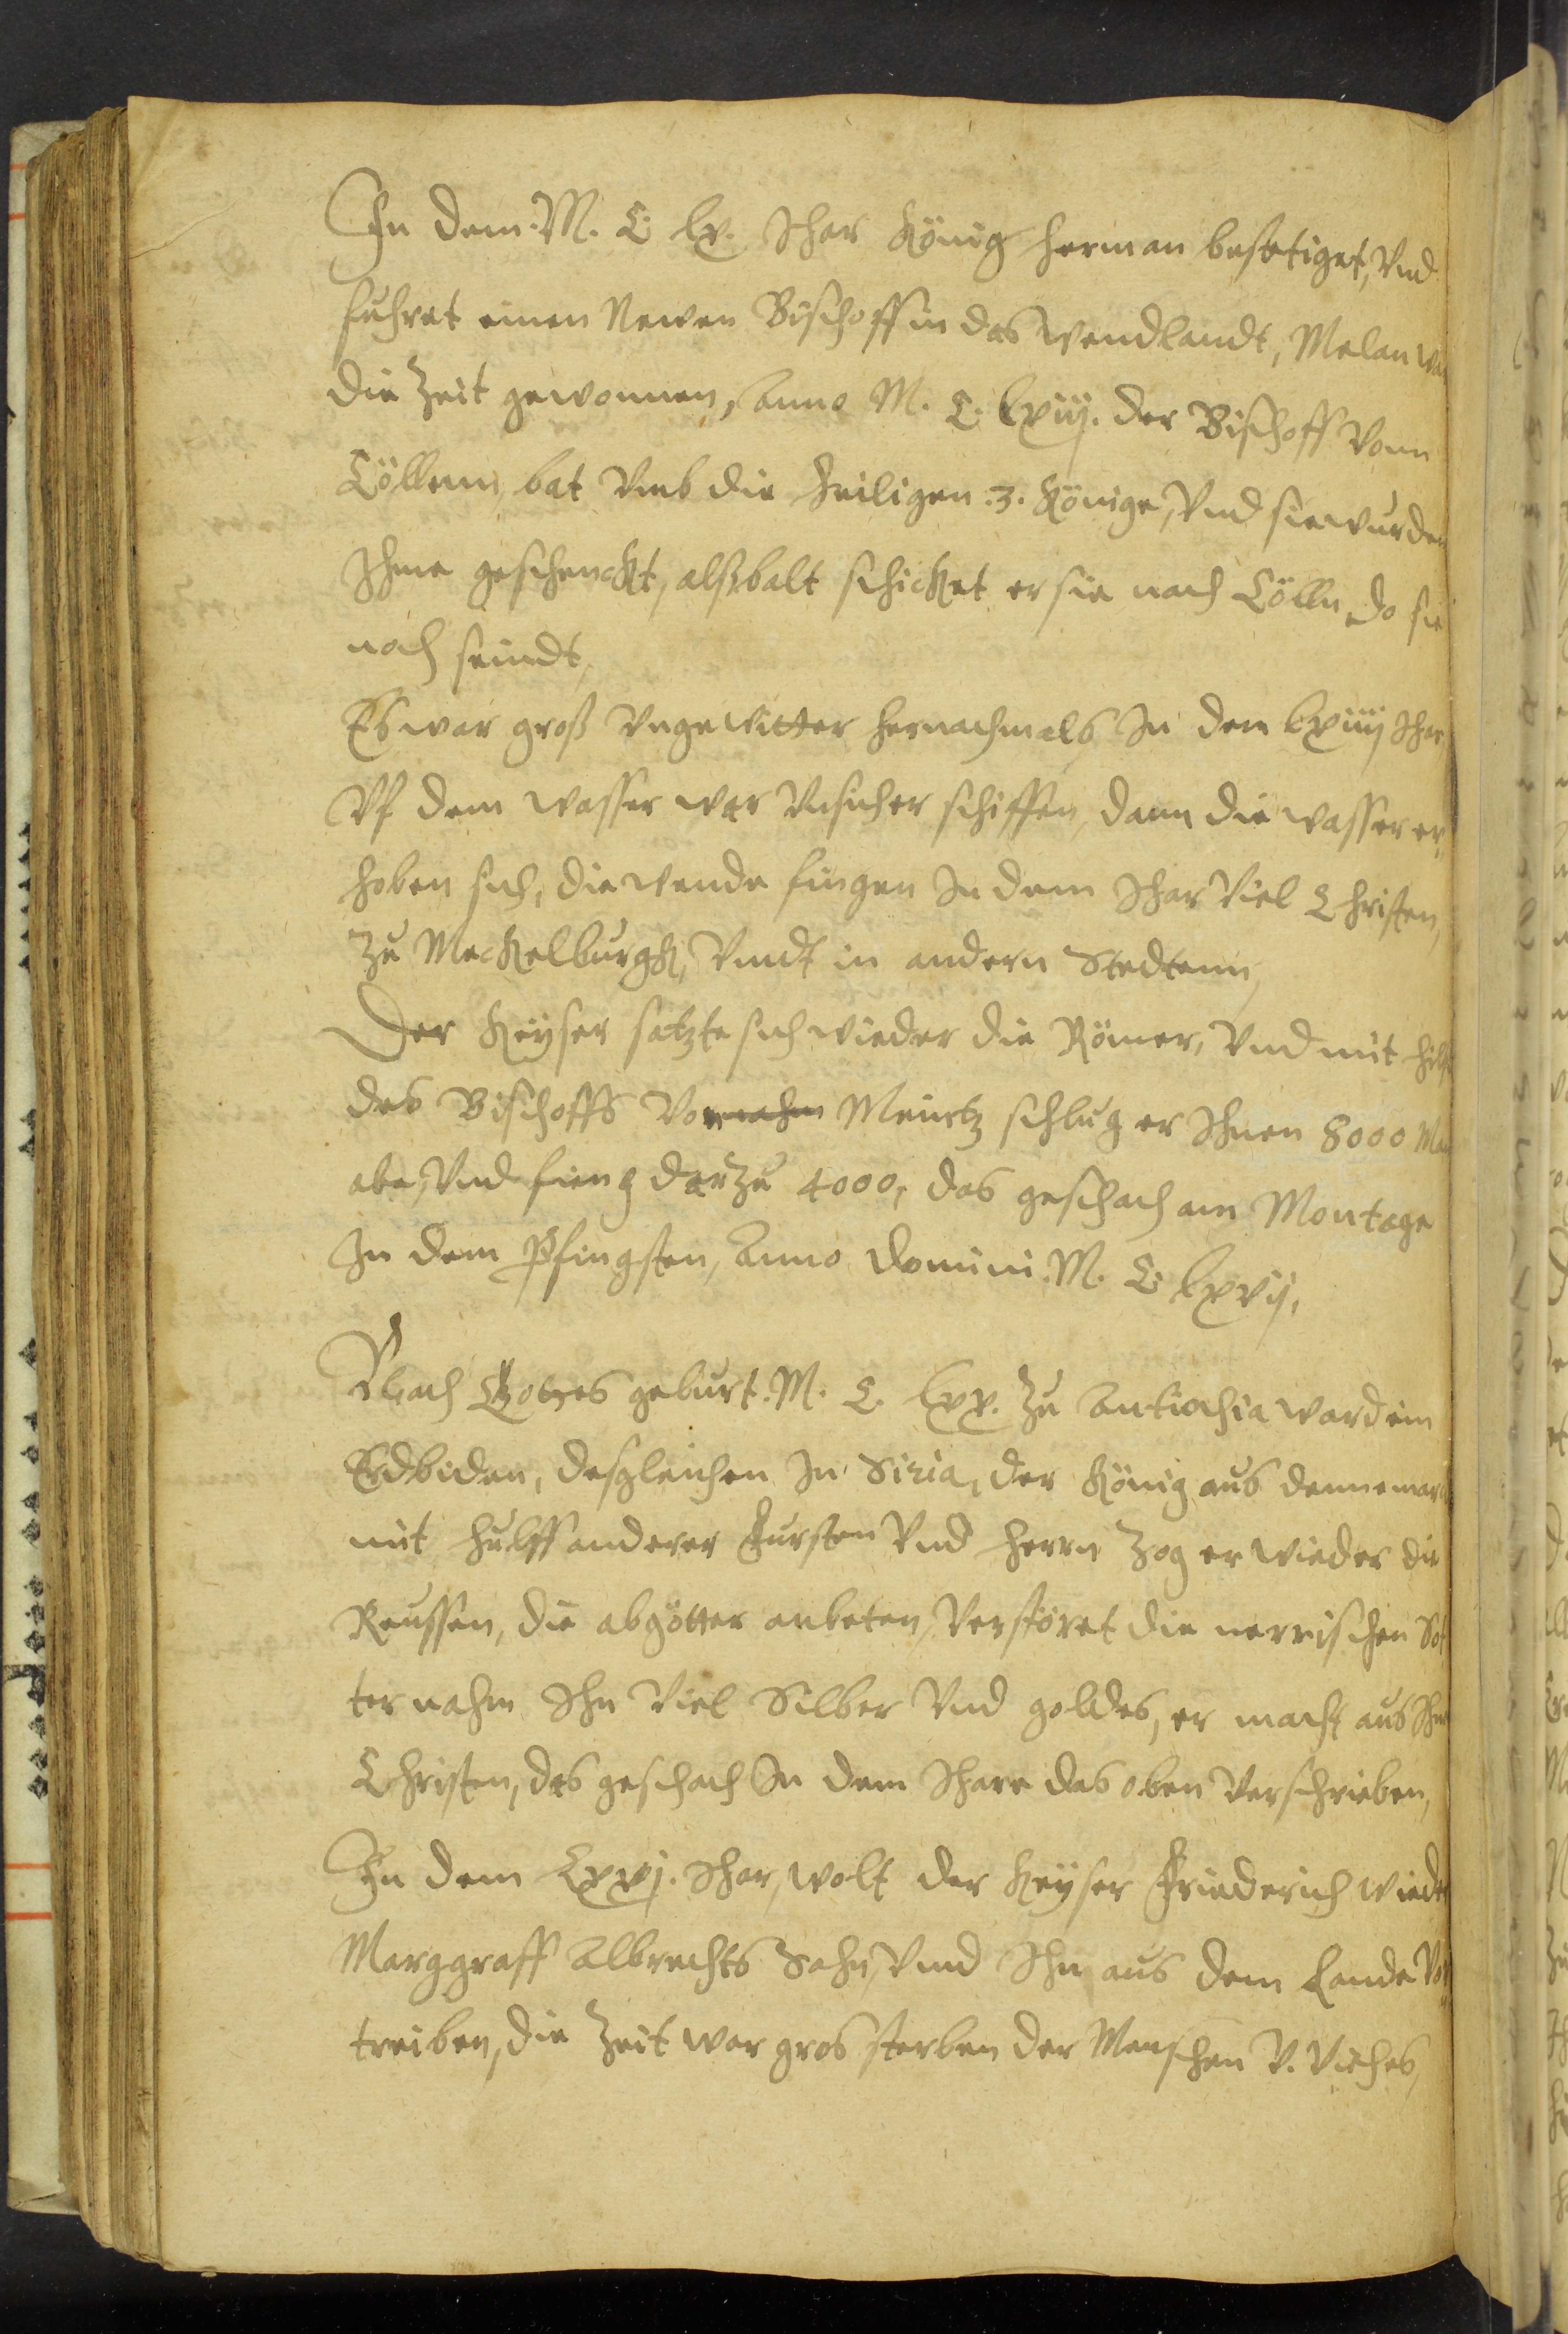 In dem M. C. lx. Jhar König Herman bestetiget, Vnd
fuhret einen Newen Bischoff in das Wendlandt, Melan
die Zeit gewonnen, Anno M. C. lxiij. der Bischoff Vonn
Cöllenn bat Vmb die Heiligen .3. Könige, Vnd sie wurden
Ihme geschenckt, alßbalt schicket er sie nach Cölln do sie
noch seindt,
Es war groß Vngewitter hernachmals, In dem lxiiij Jhar
Vf dem wasser war Vnsicher schiffen, dann die wasser er,
hoben sich, die wende fingen In dem Jhar Viel Christen,
Zu Meckelburgk, Vnndt in andern Stedtenn,
Der Keyser satzte sich wieder die Römer, Vnd mit hilff
des Bischoffs Von Meintz schlug er Ihnen 8000 Man
abe, Vnd fieng darzu 4000, das geschach am Montage
In dem Pfingsten, Anno Domini. M. C. lxvij,
Nach Gottes geburt. M. C. lxx. Zu Antiochia ward ein
Erdbiden, desgleichen In Siria, der König aus dennemarck
mit hulff anderer Fursten Vnd Herrn Zog er wieder die
Reussen, die abgötter anbeten, Verstöret die nerrischen Göt
ter nahm Ihn Viel Silber Vnd goldes, er macht aus Ihn
Christen, das geschach In dem Jhare das oben Verschrieben,
In dem Lxxj. Jhar, wolt der Keyser Friederich wieder
Marggraff Albrechts Sohn, Vnnd Ihn aus dem Lande Ver
treiben, die Zeit war gros sterben der Menschen V. Viehes,